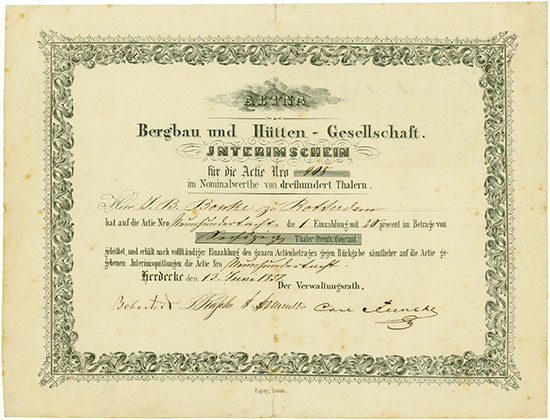 AETNA
Bergbau und Hütten - Gesellschaft.
INTERIMSCHEIN
für die Actie Nro 908
im Nominalwerthe von dreihundert Thalern.
Herr J. B. zu Rotterdam
hat auf die Actie Nro Neunhundertacht die 1 Einzahlung mit 20 procent im Betrage von
Sechszig Thaler Preuß. Courant.
geleistet, und erhält nach vollständiger Einzahlung des ganzen Actienbetrages gegen Rückgabe sämtlicher auf die Actie ge-
gebenen Interimsquittungen die Actie Nro Neunhundertacht.
Herdecke den 13 Juni 1857
Der Verwaltungsrath.
Carl